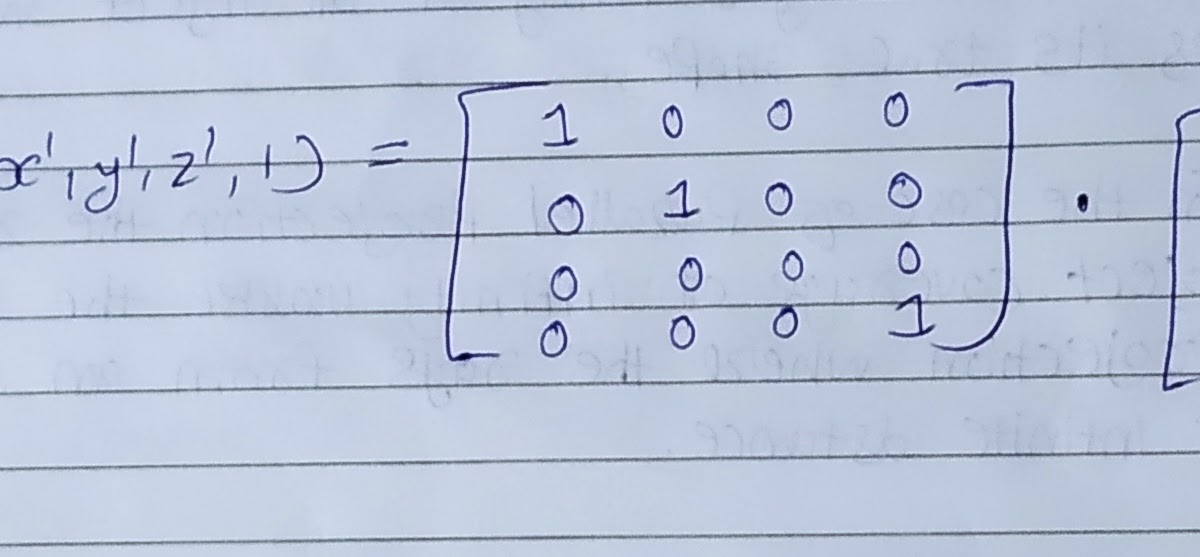 x', y', z', 1) = [ 1 0 0 0
0 1 0 0
0 0 0 0
0 0 0 1 ] . [